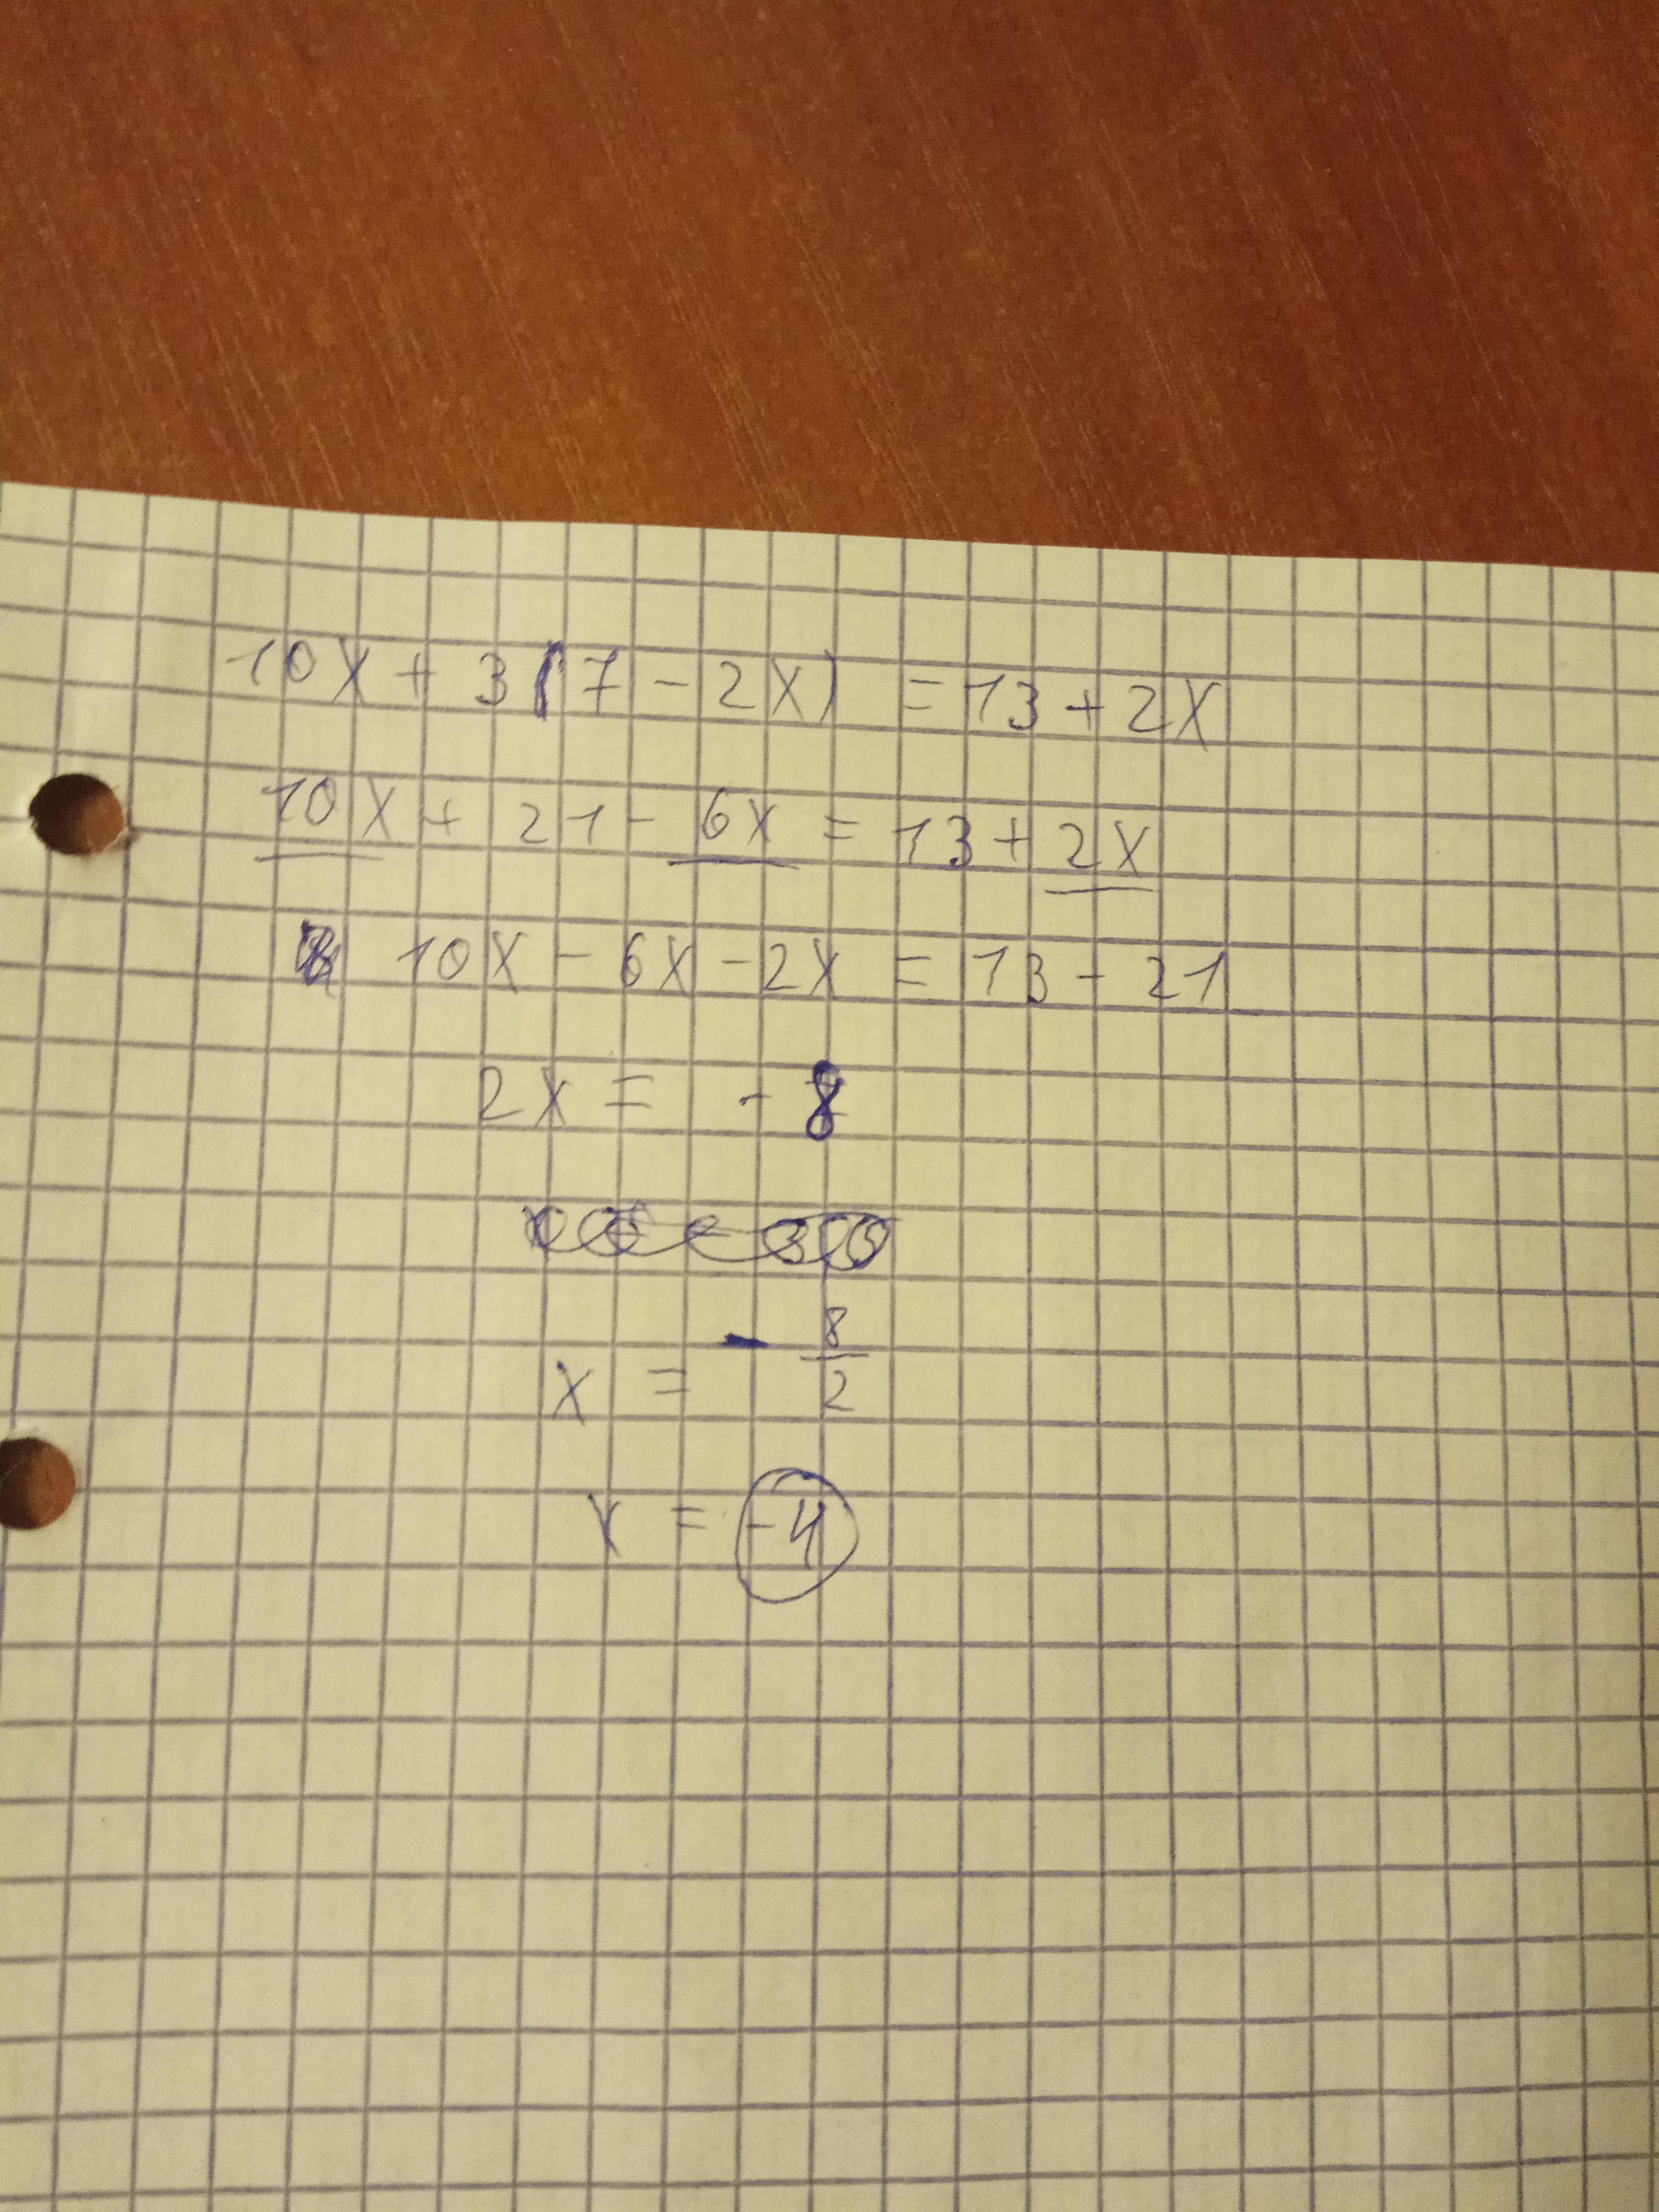 10x + 3(7 - 2x) = 13 + 2x
10x + 21 - 6x = 13 + 2x
10x - 6x - 2x = 13 - 21
2x = - 8
x = - 8/2
x = -4